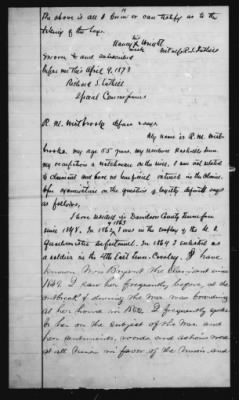 The above is all I know or can testify as to the
taking of the
his
Nancy X Wright
mark
Witness R. S. Cathell
Sworn to and subscribed
before me this April 9. 1873
Richard S. Cathell
Special Commissioner
R. M. Milbrooke deposes says
My name is R. M. Mil-
brooke, my age 55 years, my residence Nashville Tenn
my occupation a watchman on the I am not related
to claimant and have no beneficial interest in the claim.
Upon examination on the question of loyalty deposeth says
as follows,
I have resided in Davidson County Tennessee
& 1863
since 1848. In 1862 I was in the employ of the U. S.
Quartermaster Department. In 1864 I enlisted as
a soldier in the 4th East Tenn. Cavalry. I have
known Mrs Bryant the claimant since
1849. I saw her frequently before, at the
outbreak & during the war, was boarding
at her house in 1862. I frequently spoke
to her on the subject of the war and
her sentiments, words and actions were
at all times in favor of the Union, and